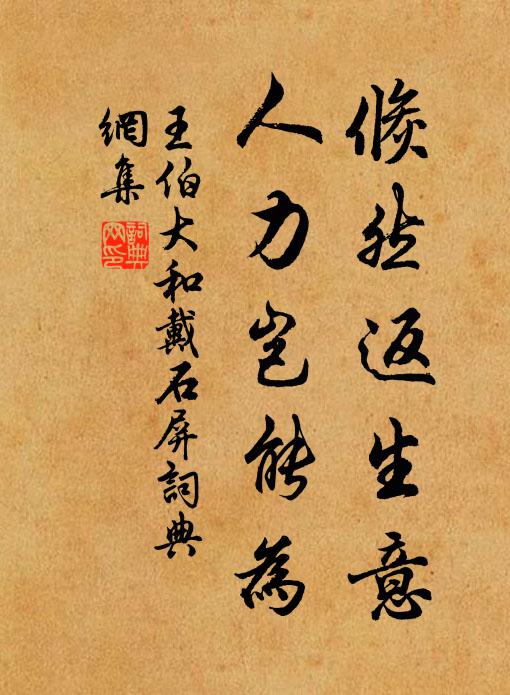 倏然返生意
人力岂能為
王伯大和戴石屏詞典
網集
詞典網印